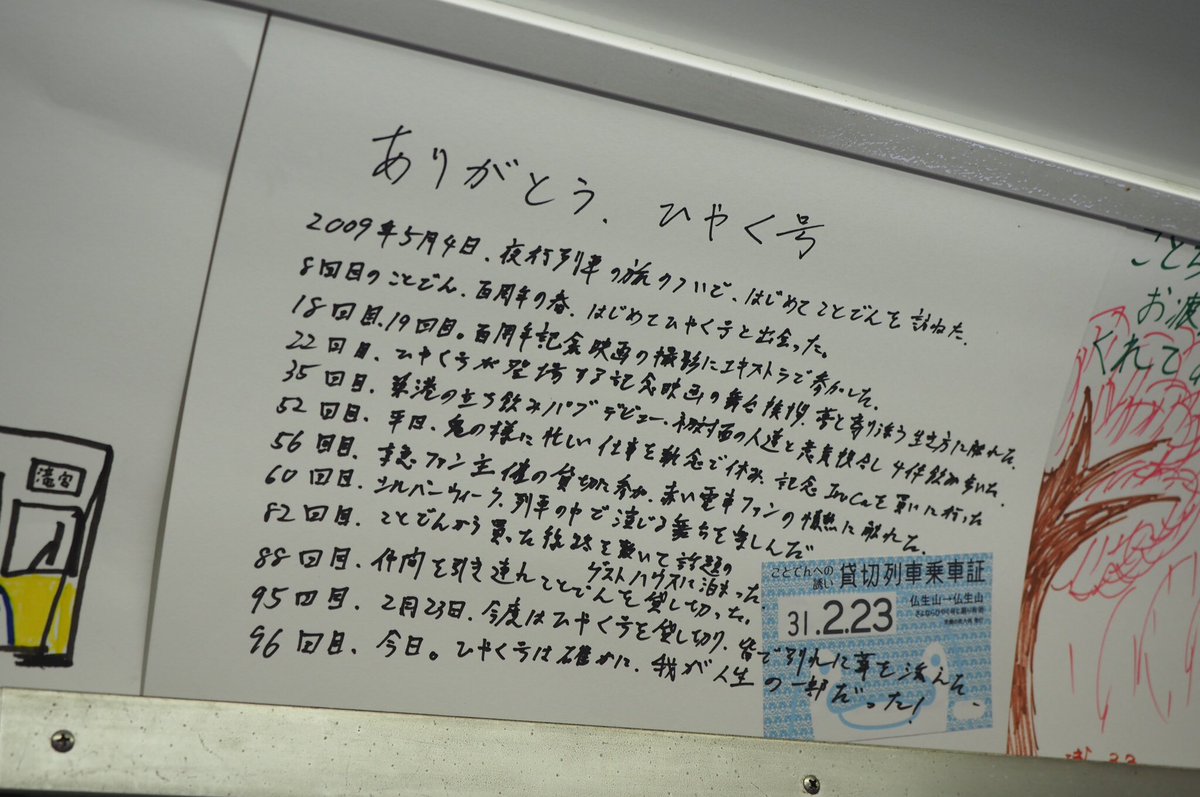 ありがとう、ひやく号
2009年5月4日、夜行列車の旅のついで、はじめてことでんを訪ねた。
8回目のことでん、百周年の春、はじめてひやく号と出会った。
18回目、19回目。百周年記念映画の撮影にエキストラで参加した。
22回目、ひやく号が登場する記念映画の舞台挨拶、夢と寄り添う生き方に触れた。
35回目、築港の立ち飲みパブデビュー、初対面の人達と意気投合し4件飲み歩いた。
52回目、平日、鬼の様に忙しい仕事を執念で休み、記念IruCaを買いに行った
56回目、京急ファン主催の貸切に参加、赤い電車ファンの情熱に触れた。
60回目、シルバーウィーク、列車の中で演じる舞台を楽しんだ
82回目、ことでんから買った線路を敷いて話題の
ゲストハウスに泊まった。
88回目、仲間を引き連れてことでんを貸し切った。
95回目、2月23日、今度はひやく号を貸し切り、皆で別れに華を添えた
96回目、今日。ひやく号は確かに、我が人生の一部だった!
ことでんへの誘い
貸切列車乗車証
31.2.23
仏生山→仏生山
こと
お渡
くれて
滝宮